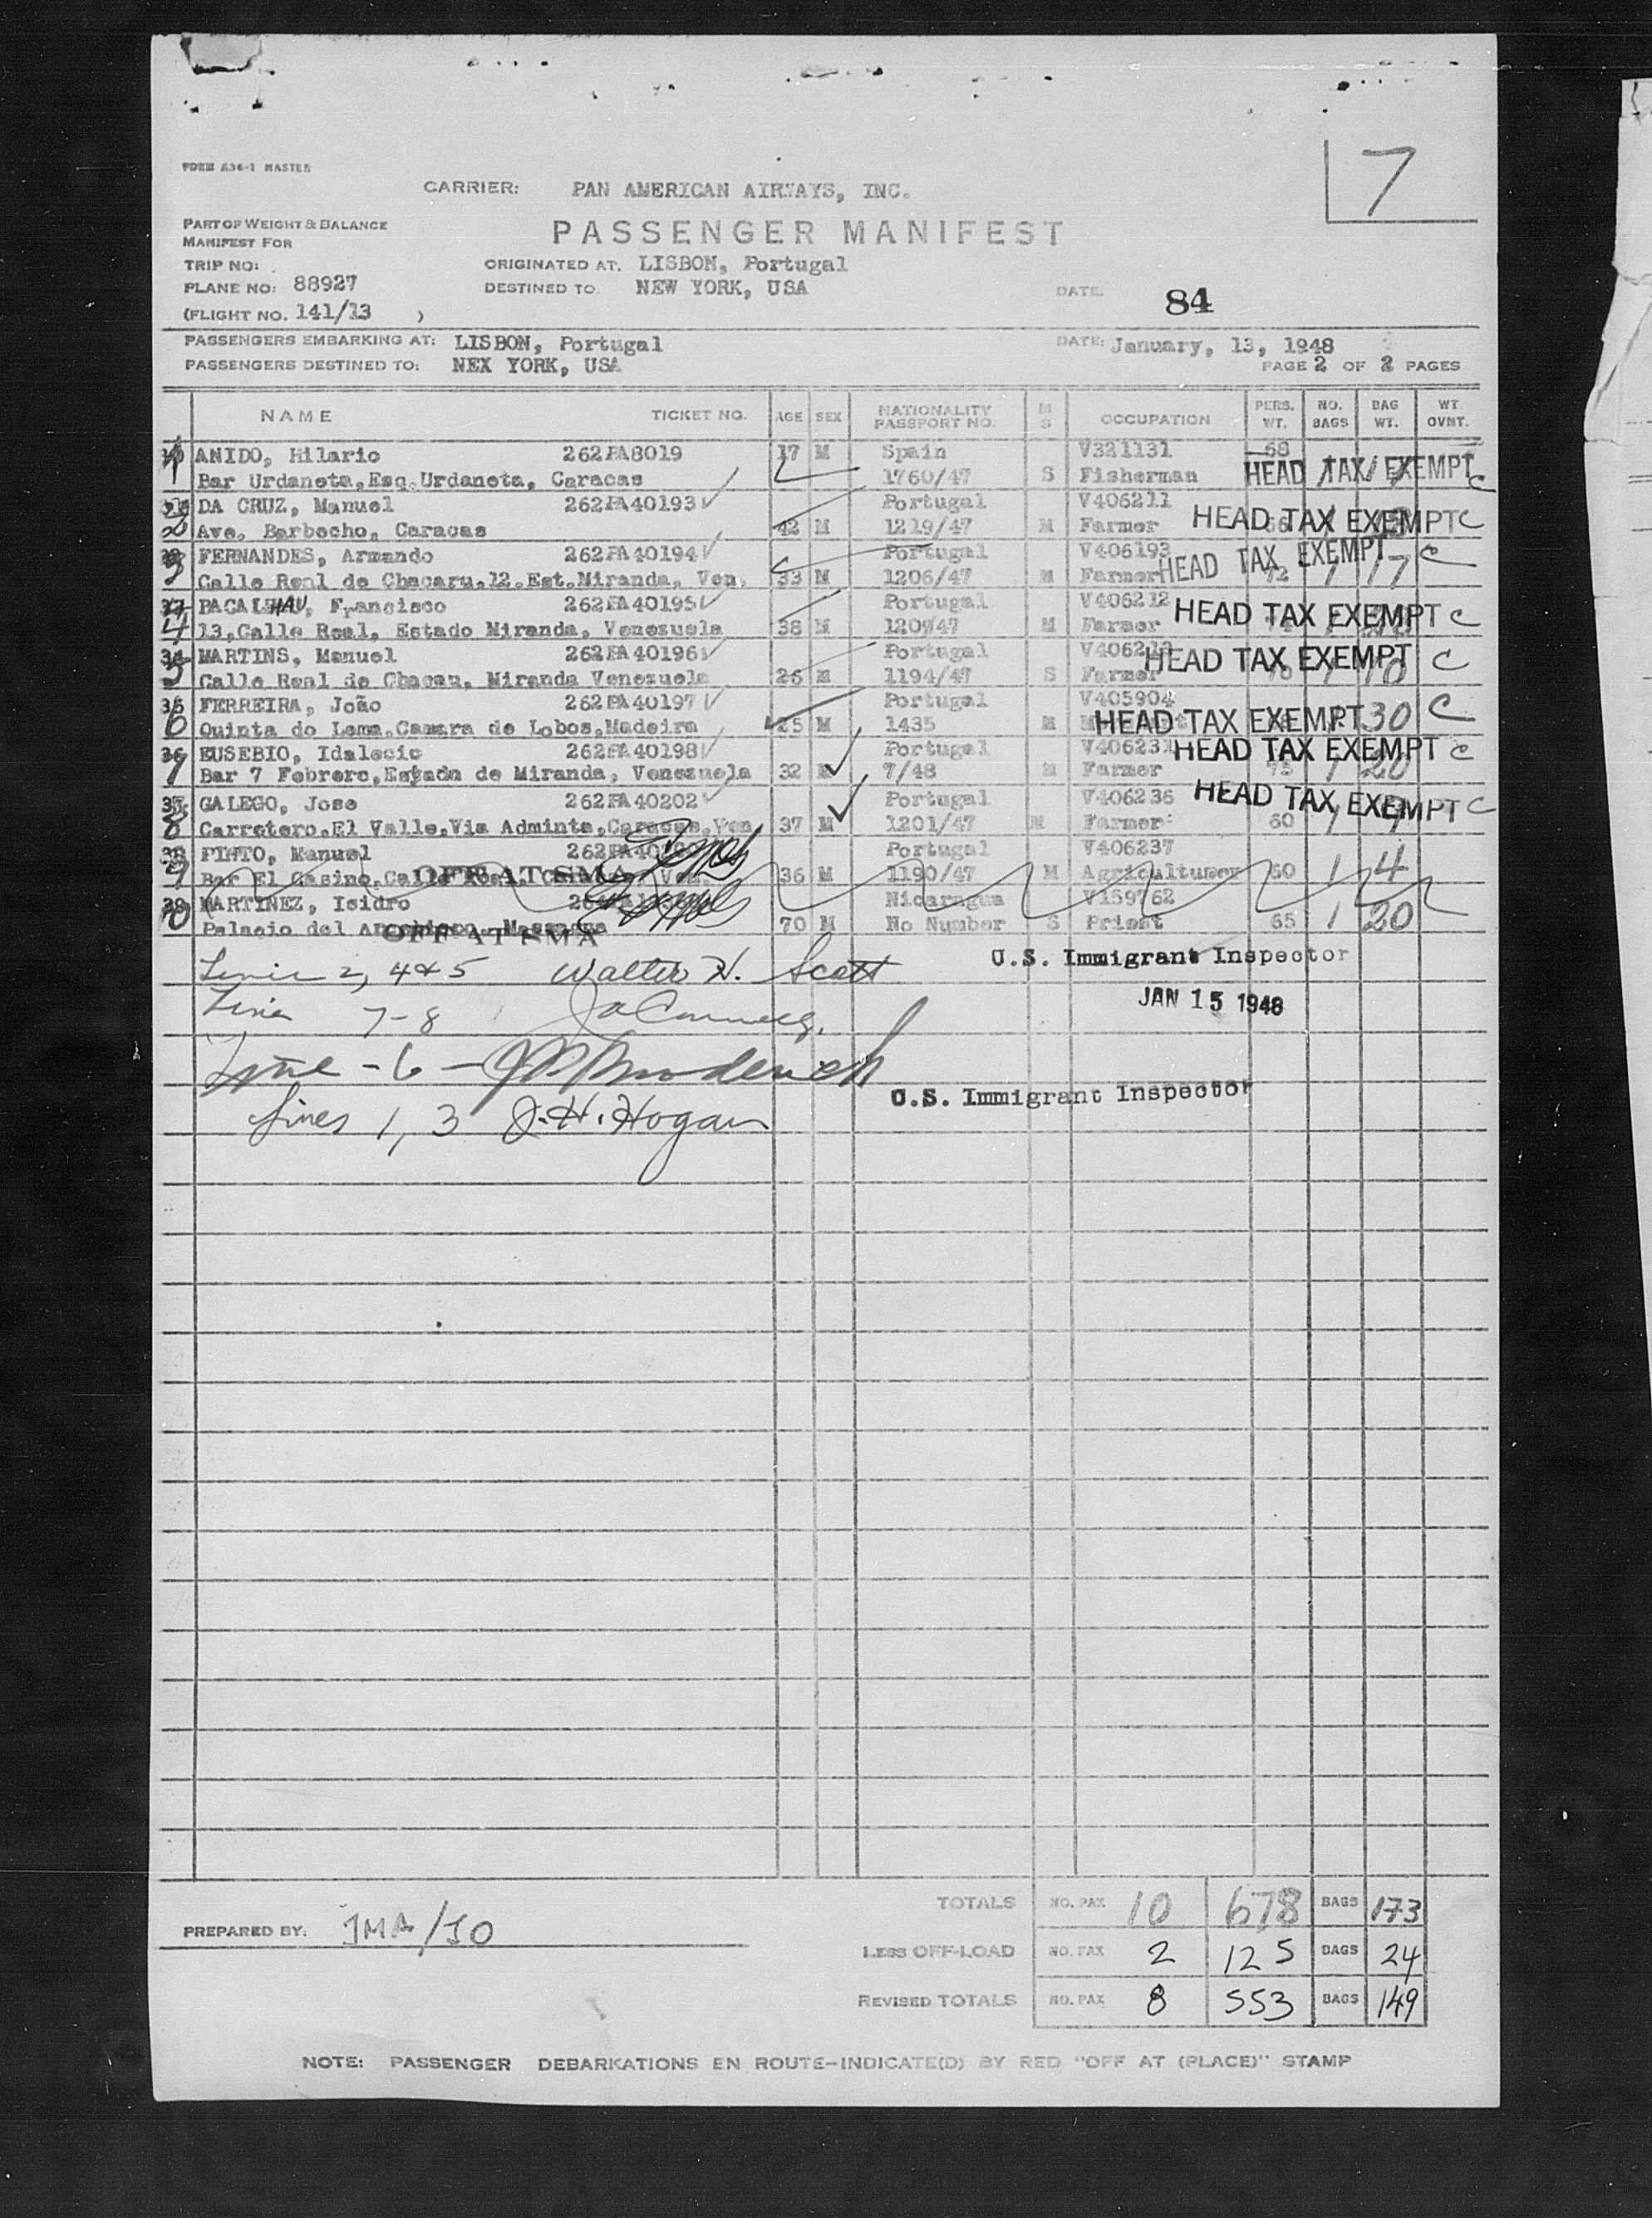 FORM A36-1 MASTER
7
CARRIER: PAN AMERICAN AIRWAYS, INC.
PART OF WEIGHT & BALANCE
MANIFEST FOR
PASSENGER MANIFEST
TRIP NO:
ORIGINATED AT. LISBON, Portugal
PLANE NO: 88927
DESTINED TO. NEW YORK, USA
DATE. 84
(FLIGHT NO. 141/13 )
PASSENGERS EMBARKING AT: LISBON, Portugal DATE: January, 13, 1948
PASSENGERS DESTINED TO: NEX YORK, USA PAGE 2 OF 2 PAGES
NAME TICKET NO. AGE SEX NATIONALITY PASSPORT NO. M S OCCUPATION PERS. WT. NO. BAGS BAG WT. WT. OVNT.
1 ANIDO, Hilario 262PA8019 17 M Spain V321131 68
Bar Urdaneta, Esq. Urdaneta, Caracas 1760/47 S Fisherman HEAD TAX EXEMPT C
2 DA CRUZ, Manuel 262PA40193 Portugal V406211
Ave. Barbecho, Caracas 42 M 1219/47 M Farmer HEAD TAX EXEMPT C
3 FERNANDES, Armando 262PA40194 Portugal V406193
Calle Real de Chacaru.12.Est.Miranda, Ven. 33 M 1206/47 M Farmer HEAD TAX EXEMPT 1 17 C
4 BACALHAU, Francisco 262PA40195 Portugal V406212
13,Calle Real, Estado Miranda, Venezuela 38 M M Farmer HEAD TAX EXEMPT C
34 5 MARTINS, Manuel 262PA40196 Portugal
Calle Real de Chacau, Miranda Venezuela 26 M 1194/47 S Farmer HEAD TAX EXEMPT 1 10 C
35 6 FERREIRA, João 262PA40197 Portugal V405904
Quinta do Lema, Camara de Lobos, Madeira 25 M 1435 M HEAD TAX EXEMPT 30 C
36 7 EUSEBIO, Idalecio 262PA40198 Portugal V406231
Bar 7 Febrero, Estado de Miranda, Venezuela 32 M 7/48 M Farmer HEAD TAX EXEMPT 75 1 20 C
37 8 GALEGO, Jose 262PA40202 Portugal V406236
Carretero, El Valle, Via Adminta, Caracas, Ven 37 M 1201/47 M Farmer 60 HEAD TAX EXEMPT C
38 9 PINTO, Manuel Portugal V406237
Bar El Casino, OFF AT SMA 36 M 1190/47 M Agriculturer 60 1 4
39 10 MARTINEZ, Isidro Nicaragua V159762
Palacio del OFF AT SMA 70 M No Number S Priest 65 1 20
Lines 2, 4 & 5 Walter H. Scott U.S. Immigrant Inspector
Line 7-8 JAN 15 1948
Line - 6 -
U.S. Immigrant Inspector
Lines 1, 3 J. H. Hogan
TOTALS NO. PAX 10 678 BAGS 173
PREPARED BY: JMA/JO
LESS OFF-LOAD NO. PAX 2 125 BAGS 24
REVISED TOTALS NO. PAX 8 553 BAGS 149
NOTE: PASSENGER DEBARKATIONS EN ROUTE-INDICATE(D) BY RED "OFF AT (PLACE)" STAMP